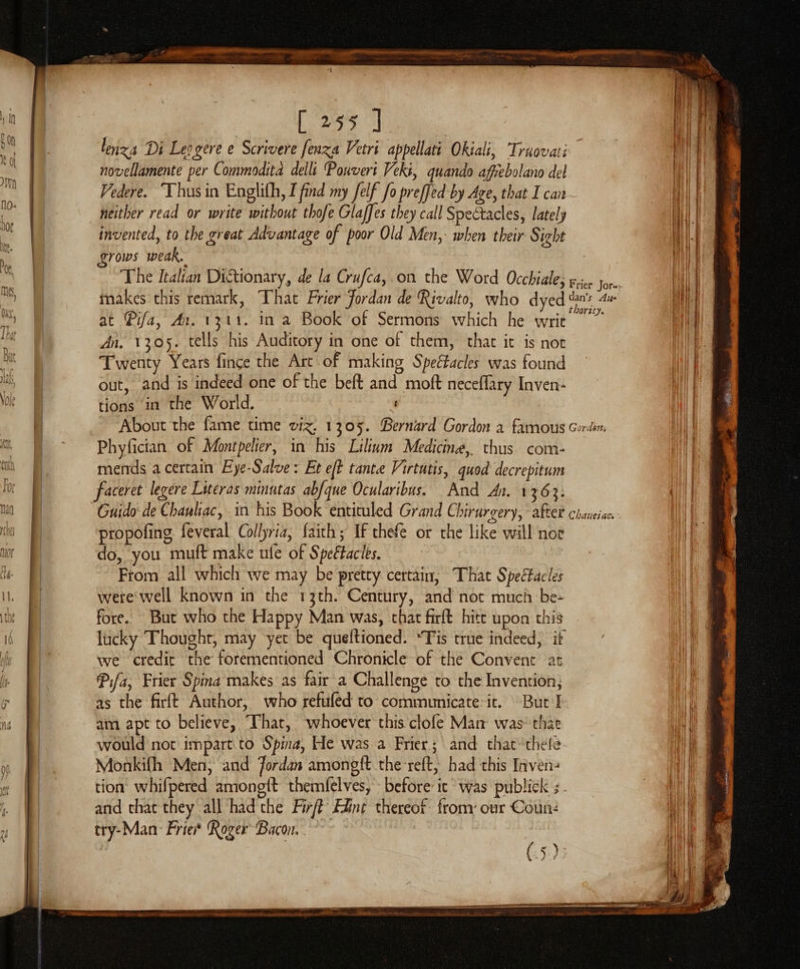 [ 255 ]
lenza Di Leggere e Scrivere ſenza Vetri appellati Okiali, Truovati
novellamente per Commoditá delli Pouveri Veki, quando affiebolano del
Vedere. Thus in Engliſh, I find my ſelf ſo preſſed by Age, that I can
neither read or write without thoſe Glaſſes they call Spectacles, lately
invented, to the great Advantage of poor Old Men, when their Sight
grows weak.
The Italian Dictionary, de la Cruſca, on the Word Occhiale; Frier Jor-
makes this remark, That Frier Jordan de Rivalto, who dyed dan's Au-
at Piſa, An. 1311. in a Book of Sermons which he writ thority.
An. 1305. tells his Auditory in one of them, that it is not
Twenty Years ſince the Art of making Spectacles was found
out, and is indeed one of the beſt and moſt neceſſary Inven-
tions in the World.
About the ſame time viz. 1305. Bernard Gordon a famous Gordon.
Phyſician of Montpelier, in his Lilium Medicinæ, thus com-
mends a certain Eye-Salve: Et eſt tantæ Virtutis, quod decrepitum
faceret legere Literas minutas abſque Ocularibus. And An. 1363.
Guido de Chauliac, in his Book entituled Grand Chirurgery, after
propoſing ſeveral Collyria, ſaith; If theſe or the like will not
do, you muſt make uſe of Spectacles.
From all which we may be pretty certain, That Spectacles
were well known in the 13th. Century, and not much be-
fore. But who the Happy Man was, that firſt hitt upon this
lucky Thought, may yet be queſtioned. 'Tis true indeed, if
we credit the forementioned Chronicle of the Convent at
Piſa, Frier Spina makes as fair a Challenge to the Invention,
as the firſt Author, who refuſed to communicate it. But I
am apt to believe, That, whoever this cloſe Man was that
would not impart to Spina, He was a Frier; and that theſe
Monkiſh Men, and Jordan amongſt the reſt, had this Inven-
tion whiſpered amongſt themſelves, before it was publick;
and that they all had the Firſt Hint thereof from our Coun-
try-Man Frier Roger Bacon.
(5)